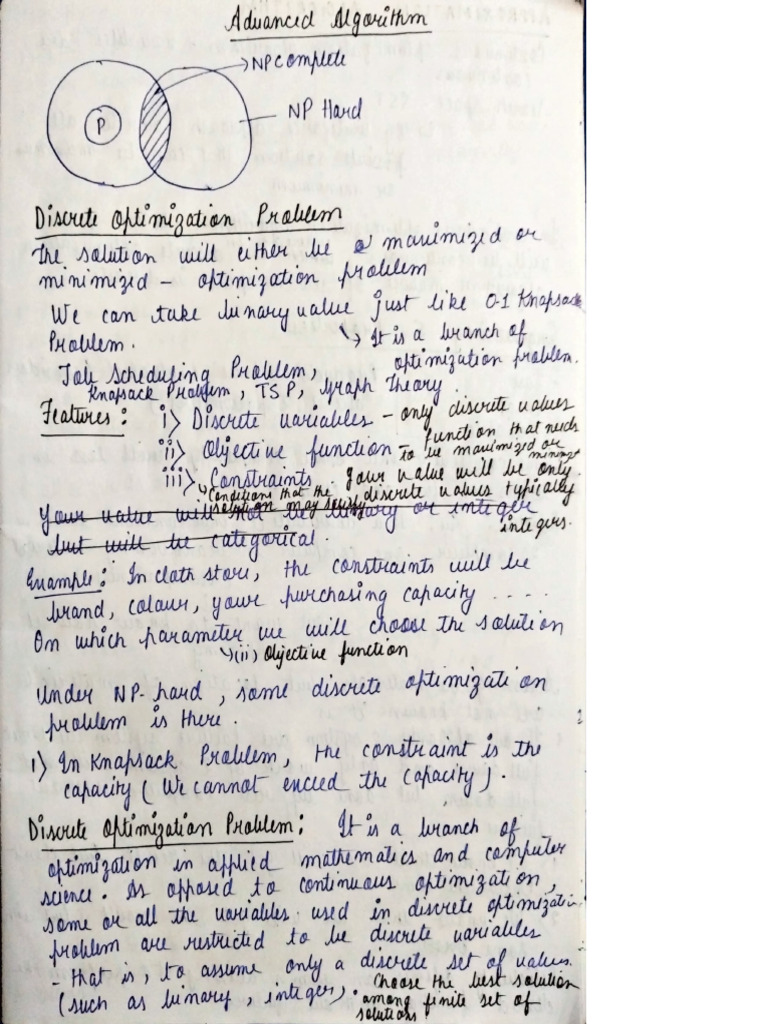 Advanced Algorithm
NP complete
P
NP Hard
Discrete Optimization Problem
The solution will either be a maximized or
minimized - optimization problem
We can take binary value just like 0-1 Knapsack
Problem.
↳ It is a branch of
optimization problem.
Job Scheduling Problem,
Knapsack Problem, TSP, Graph Theory.
Features: i) Discrete variables - only discrete values
ii) Objective function - function that needs
to be maximized or
iii) Constraints. Your value will be only
↳ Conditions that the
solution may satisfy
discrete values typically
integers.
Your value will not be binary or integer
but will be categorical.
Example: In cloth store, the constraints will be
brand, colour, your purchasing capacity ....
On which parameter we will choose the solution
↳(ii) Objective function
Under NP-hard, some discrete optimization
problem is there.
1) In Knapsack Problem, the constraint is the
capacity (We cannot exceed the capacity).
Discrete Optimization Problem: It is a branch of
optimization in applied mathematics and computer
science. As opposed to continuous optimization,
some or all the variables used in discrete optimization
problem are restricted to be discrete variables
- that is, to assume only a discrete set of values
(such as binary, integer). Choose the best solution
among finite set of
solutions